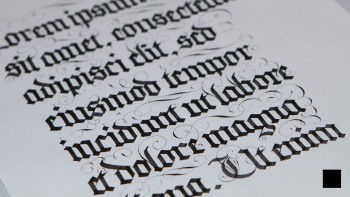 Lorem ipsum
sit amet, consectetur
adipisci elit, sed
eiusmod tempor
incidunt ut labore
et dolore magna
aliqua. Ut enim